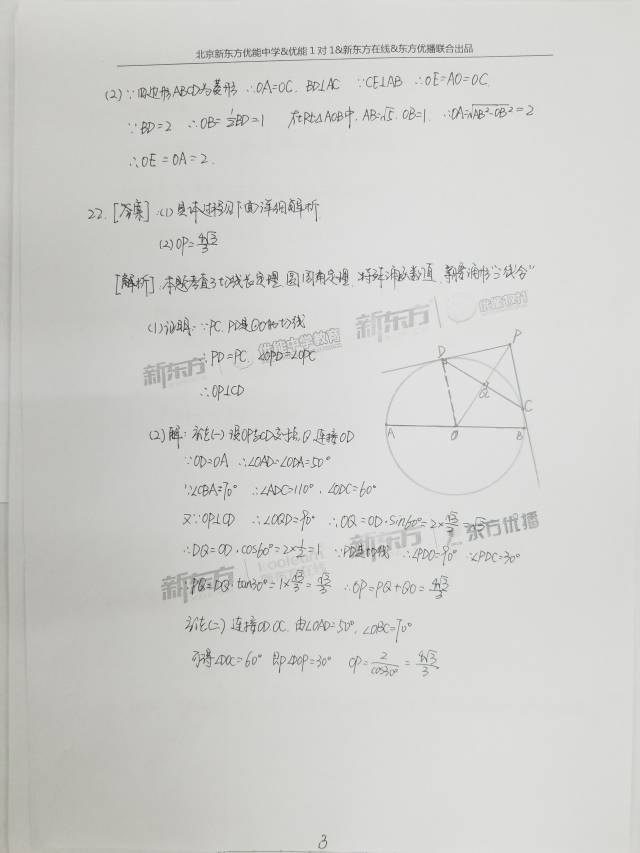 北京新东方优能中学&优能1对1&新东方在线&东方优播联合出品
(2) ∵四边形ABCD为菱形 ∴OA=OC. BD⊥AC ∵CE⊥AB ∴OE=AO=OC.
∵BD=2 ∴OB=½BD=1 在Rt△AOB中, AB=√5. OB=1. ∴OA=√AB²-OB²=2
∴OE=OA=2.
22. [答案] (1) 具体过程见下面详细解析.
(2) OP=4√3/3
[解析] 本题考查了切线长定理、圆周角定理、特殊 三角函数值、等腰三角形“三线合一”
(1)证明: ∵PC, PD是⊙O的切线
∴PD=PC. ∠OPD=∠OPC
∴OP⊥CD
(2)解: 方法(一) 设OP与CD交于点Q, 连接OD
∵OD=OA ∴∠OAD=∠ODA=50°
∵∠CBA=70° ∴∠ADC=110°, ∠ODC=60°
又∵OP⊥CD ∴∠OQD=90° ∴OQ=OD·sin60°=2×√3/2=√3
∴DQ=OD·cos60°=2×½=1 ∵PD是切线 ∴∠PDO=90° ∠PDC=30°
∴PQ=DQ·tan30°=1×√3/3=√3/3 ∴OP=PQ+QO=4√3/3
方法(二) 连接OD. OC. 由∠OAD=50°, ∠OBC=70°
可得∠DOC=60° 即∠DOP=30° OP=2/cos30°=4√3/3
D
P
Q
C
A
O
B
新东方
优能中学教育
新东方
优能1对1
新东方
koolearn
新东方
东方优播
3